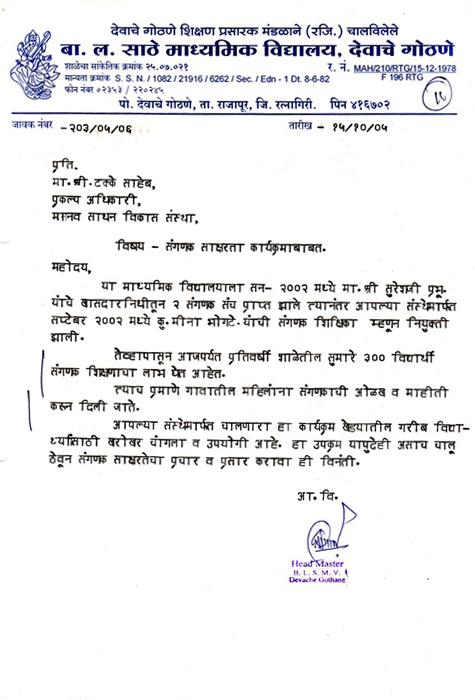 देवाचे गोठणे शिक्षण प्रसारक मंडळाने (रजि.) चालविलेले
बा. ल. साठे माध्यमिक विद्यालय, देवाचे गोठणे
शाळेचा सांकेतिक क्रमांक २५.०७.०२१
र. नं. MAH/210/RTG/15-12-1978
मान्यता क्रमांक S. S. N. / 1082 / 21916 / 6262 / Sec. / Edn - 1 Dt. 8-6-82
F 196 RTG
फोन नंबर ०२३५३ / २२०२४५
पो. देवाचे गोठणे, ता. राजापूर, जि. रत्नागिरी. पिन ४१६७०२
जावक नंबर - २०३/०५/०६
तारीख - १५/१०/०५
प्रति.
मा. श्री. टक्के साहेब,
प्रकल्प अधिकारी,
मानव साधन विकास संस्था,
विषय - संगणक साक्षरता कार्यक्रमाबाबत.
महोदय,
या माध्यमिक विद्यालयाला सन- २००२ मध्ये मा. श्री सुरेशजी प्रभू
यांचे खासदारनिधीतून २ संगणक संच प्राप्त झाले त्यानंतर आपल्या संस्थेमार्फत
सप्टेंबर २००२ मध्ये कु. मीना भोगटे. यांची संगणक शिक्षिका म्हणून नियुक्ती
झाली.
तेव्हापासून आजपर्यंत प्रतिवर्षी शाळेतील सुमारे ३०० विद्यार्थी
संगणक शिक्षणाचा लाभ घेत आहेत.
त्याच प्रमाणे गावातील महिलांना संगणकाची ओळख व माहीती
करून दिली जाते.
आपल्या संस्थेमार्फत चालणारा हा कार्यक्रम खेड्यातील गरीब विद्या-
र्थ्यांसाठी खरोखर चांगला व उपयोगी आहे. हा उपक्रम यापुढेही असाच चालू
ठेवून संगणक साक्षरतेचा प्रचार व प्रसार करावा ही विनंती.
आ. वि.
Head Master
B. L. S. M. V.
Devache Gothane